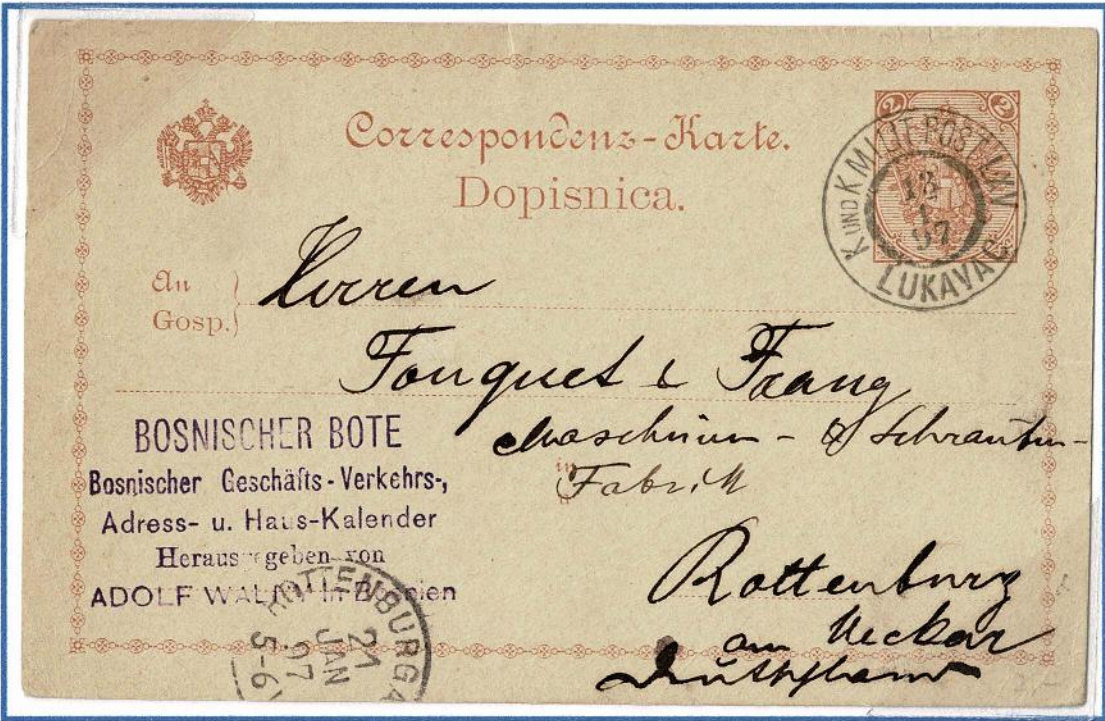 Correspondenz-Karte.
Dopisnica.
2 2
K UND K MILIT. POST LXIV
18
1
97
LUKAVAC
An
Gosp.
Herren
Fouquet & Franz
Maschinen- & Schrauben-
in
Fabrik
Rottenburg
am Neckar
Deutschland
BOSNISCHER BOTE
Bosnischer Geschäfts-Verkehrs-,
Adress- u. Haus-Kalender
Herausgegeben von
ADOLF WALNY in
ROTTENBURG A
21
JAN
97
5-6